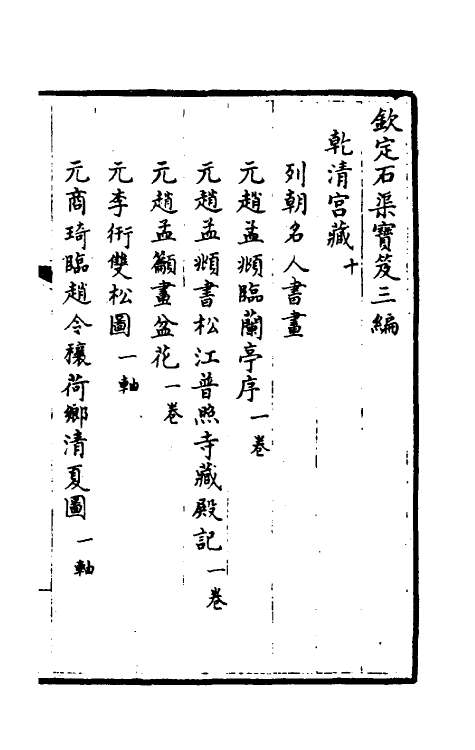 欽定石渠寶笈三編
乾清宮藏十
列朝名人書畫
元趙孟頫臨蘭亭序一卷
元趙孟頫書松江普照寺藏殿記一卷
元趙孟籲畫盆花一卷
元李衎雙松圖一軸
元商琦臨趙令穰荷鄉清夏圖一軸